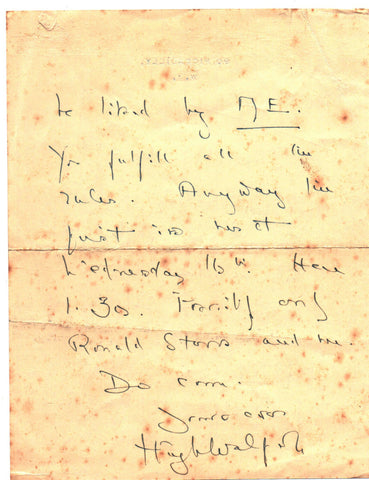 be liked by ME.
You fulfill all the
rules. Anyway the
first is next
Wednesday 16th. Here
1.30. Probably only
Ronald Storrs and me.
Do come.
Yours ever
Hugh Walpole